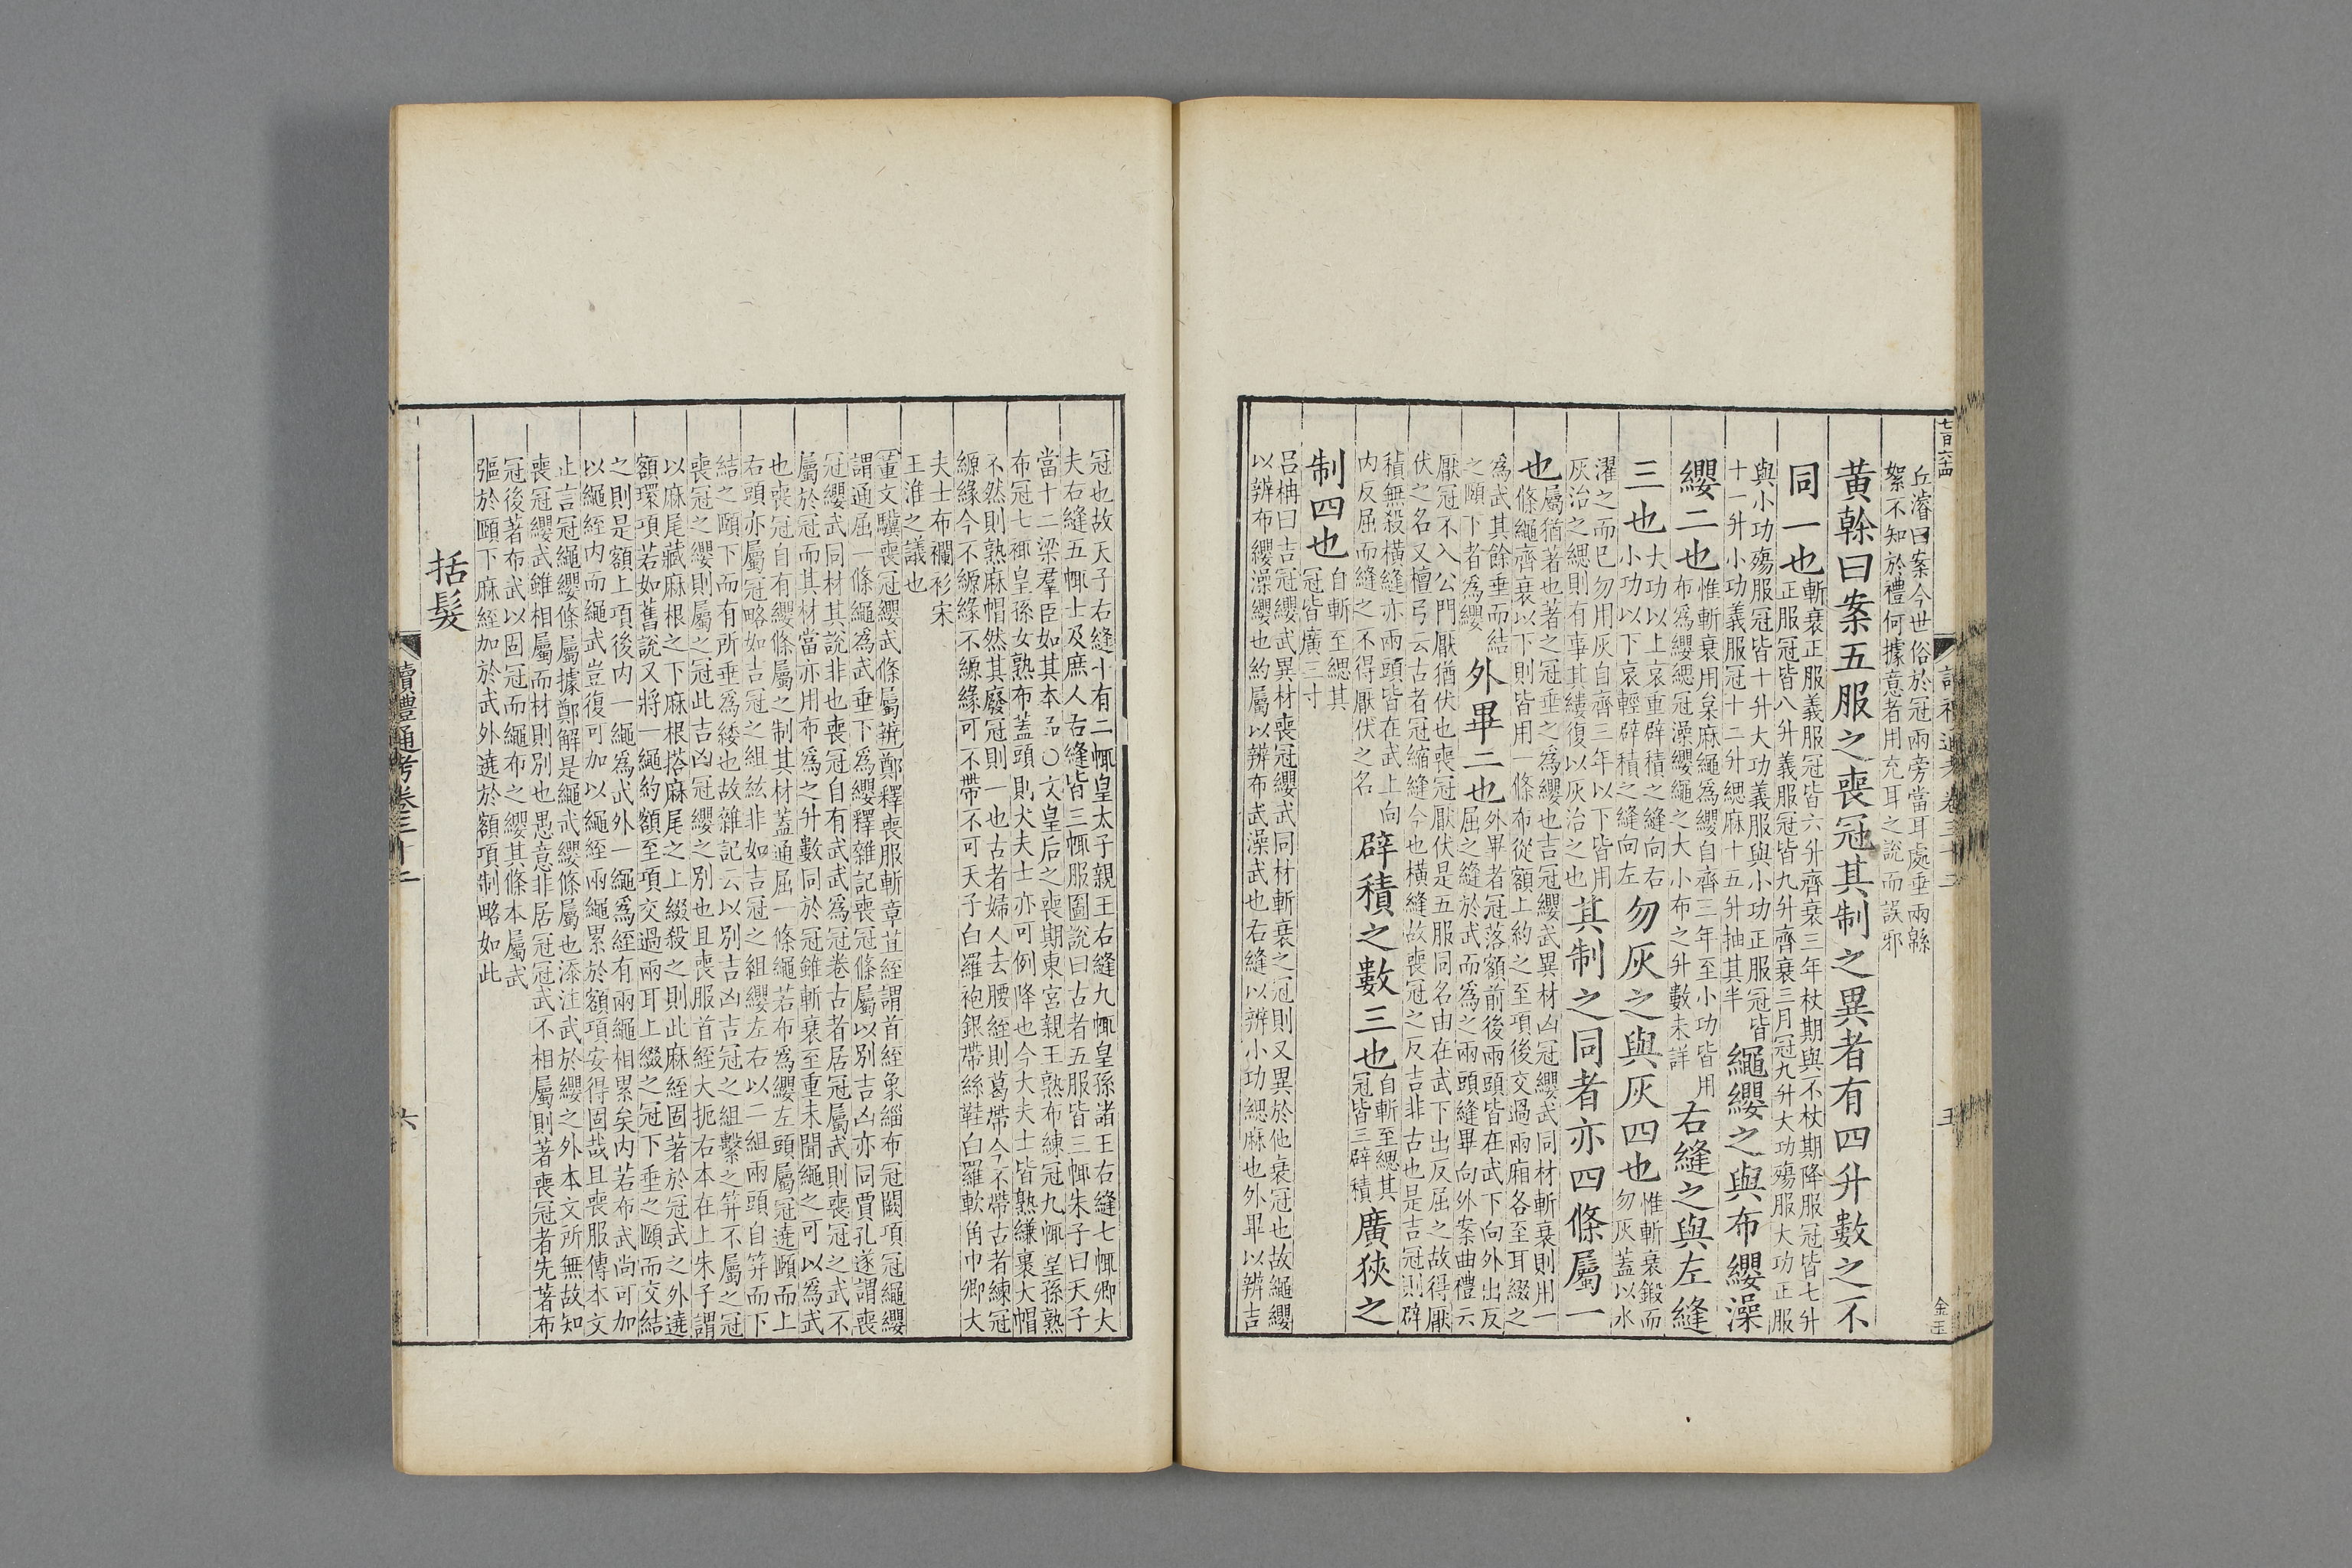 七百六十四
丘濬曰案今世俗於冠兩旁當耳處垂兩緜
絮不知於禮何據意者用充耳之說而誤邪
黃榦曰案五服之喪冠其制之異者有四升數之不
同一也
斬衰正服義服冠皆六升齊衰三年杖期與不杖期降服冠皆七升
正服冠皆八升義服冠皆九升齊衰三月冠九升大功殤服大功正服
與小功殤服冠皆十升大功義服與小功正服冠皆
十一升小功義服冠十二升緦麻十五升抽其半
繩纓之與布纓澡
纓二也
惟斬衰用枲麻繩爲纓自齊三年至小功皆用
布爲纓緦冠澡纓繩之大小布之升數未詳
右縫之與左縫
三也
大功以上哀重辟積之縫向右
小功以下哀輕辟積之縫向左
勿灰之與灰四也
惟斬衰鍛而
勿灰蓋以水
濯之而已勿用灰自齊三年以下皆用
灰治之緦則有事其縷復以灰治之也
其制之同者亦四條屬一
也
屬猶著也著之冠垂之爲纓也吉冠纓武異材凶冠纓武同材斬衰則用一
條繩齊衰以下則皆用一條布從額上約之至項後交過兩廂各至耳綴之
爲武其餘垂而結
之頤下者爲纓
外畢二也
外畢者冠落額前後兩頭皆在武下向外出反
屈之縫於武而爲之兩頭縫畢向外案曲禮云
厭冠不入公門厭猶伏也喪冠厭伏是五服同名由在武下出反屈之故得厭
伏之名又檀弓云古者冠縮縫今也橫縫故喪冠之反吉非古也是吉冠則辟
積無殺橫縫亦兩頭皆在武上向
內反屈而縫之不得厭伏之名
辟積之數三也
自斬至緦其
冠皆三辟積
廣狹之
制四也
自斬至緦其
冠皆廣三寸
呂柟曰吉冠纓武異材喪冠纓武同材斬衰之冠則又異於他衰冠也故繩纓
以辨布纓澡纓也約屬以辨布武澡武也右縫以辨小功緦麻也外畢以辨吉
五
金玉
冠也故天子右縫十有二㡇皇太子親王右縫九㡇皇孫諸王右縫七㡇卿大
夫右縫五㡇士及庶人右縫皆三㡇服圖說曰古者五服皆三㡇朱子曰天子
當十二梁羣臣如其本品〇文皇后之喪期東宮親王熟布練冠九㡇皇孫熟
布冠七㡇皇孫女熟布蓋頭則大夫士亦可例降也今大夫士皆熟縑裹大帽
不然則熟麻帽然其廢冠則一也古者婦人去腰絰則葛帶今不帶古者練冠
縓緣今不縓緣不縓緣可不帶不可天子白羅袍銀帶絲鞋白羅軟角巾卿大
夫士布襴衫宋
王淮之議也
董文驥喪冠纓武條屬辨鄭釋喪服斬章苴絰謂首絰象緇布冠闕項冠繩纓
謂通屈一條繩爲武垂下爲纓釋雜記喪冠條屬以別吉凶亦同賈孔遂謂喪
冠纓武同材其說非也喪冠自有武武爲冠卷古者居冠屬武則喪冠之武不
屬於冠而其材當亦用布爲之升數同於冠雖斬衰至重未聞繩之可以爲武
也喪冠自有纓條屬之制其材蓋通屈一條繩若布爲纓左頭屬冠遶頤而上
右頭亦屬冠略如吉冠之組紘非如吉冠之組纓左右以二組兩頭自筓而下
結之頤下而有所垂爲緌也故雜記云以別吉凶吉冠之組繫之筓不屬之冠
喪冠之纓則屬之冠此吉凶冠纓之別也且喪服首絰大扼右本在上朱子謂
以麻尾藏麻根之下麻根搭麻尾之上綴殺之則此麻絰固著於冠武之外遶
額環項若如舊說又將一繩約額至項交過兩耳上綴之冠下垂之頤而交結
之則是額上項後內一繩爲武外一繩爲絰有兩繩相累矣內若布武尚可加
以繩絰內而繩武豈復可加以繩絰兩繩累於額項安得固哉且喪服傳本文
止言冠繩纓條屬據鄭解是繩武纓條屬也添注武於纓之外本文所無故知
喪冠纓武雖相屬而材則別也愚意非居冠冠武不相屬則著喪冠者先著布
冠後著布武以固冠而繩布之纓其條本屬武
彄於頤下麻絰加於武外遶於額項制略如此
括髮
讀禮通考卷三十二
六